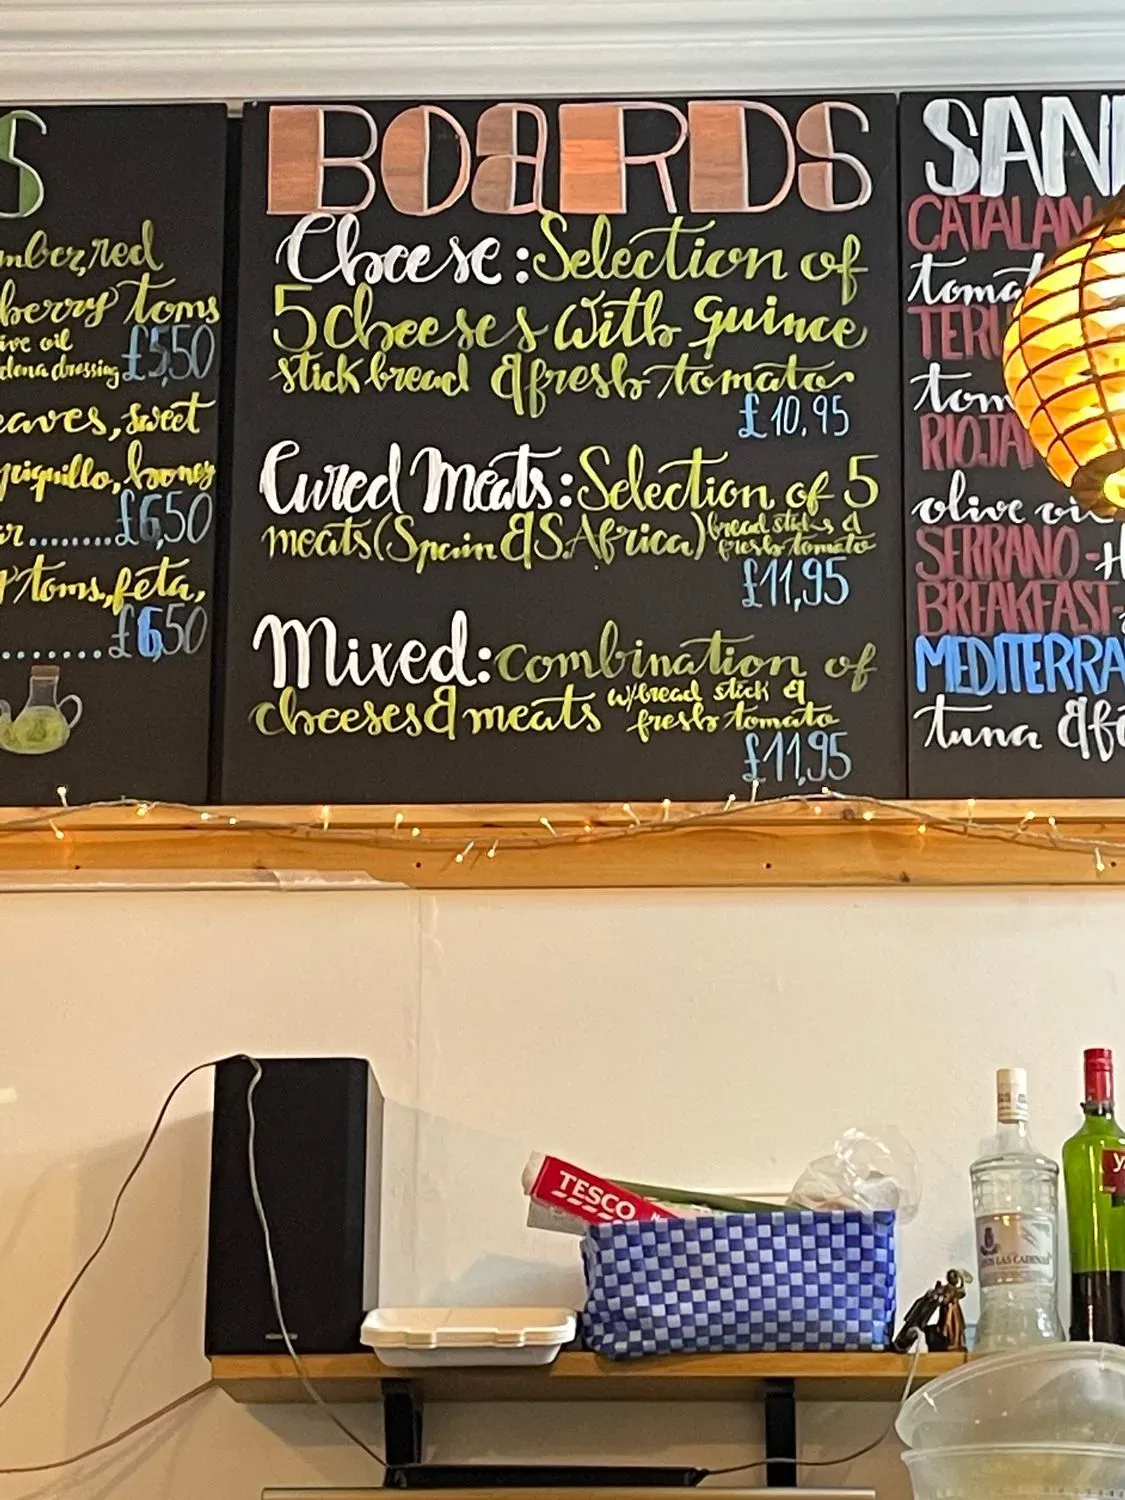 S
red
berry toms
ive oil
dressing £5,50
eaves, sweet
piquillo, honey
ar........£6,50
toms, feta,
........£6,50
BOARDS
Cheese: Selection of
5 cheeses with quince
stick bread & fresh tomato
£10,95
Cured Meats: Selection of 5
meats (Spain & S. Africa) bread sticks &
fresh tomato
£11,95
Mixed: combination of
cheeses & meats w/bread stick &
fresh tomato
£11,95
SAN
CATALAN
tomat
TERU
tom
RIOJA
olive oil
SERRANO - H
BREAKFAST-
MEDITERRA
tuna & f
TESCO
LAS CADENAS